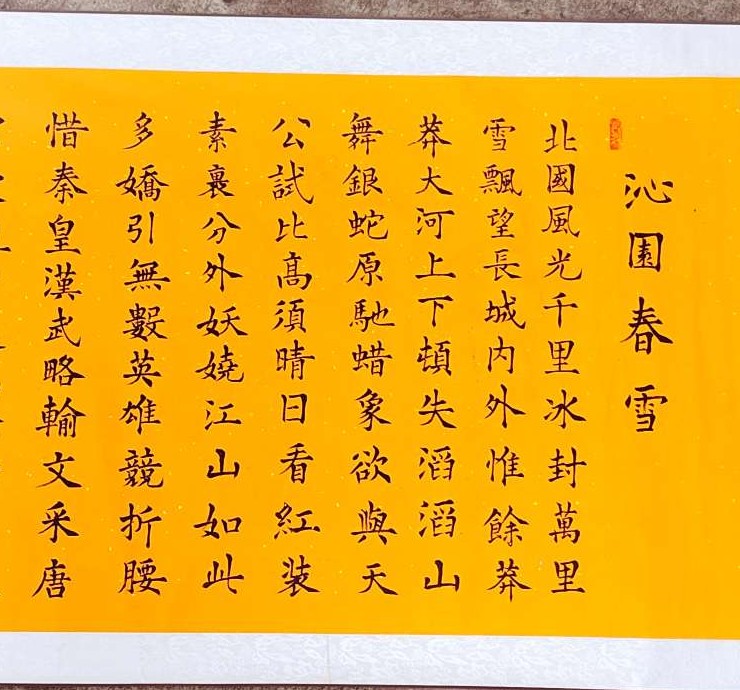 沁園春雪
北國風光千里冰封萬里
雪飄望長城内外惟餘莽
莽大河上下頓失滔滔山
舞銀蛇原馳蜡象欲與天
公試比高須晴日看紅裝
素裹分外妖嬈江山如此
多嬌引無數英雄競折腰
惜秦皇漢武略輸文采唐